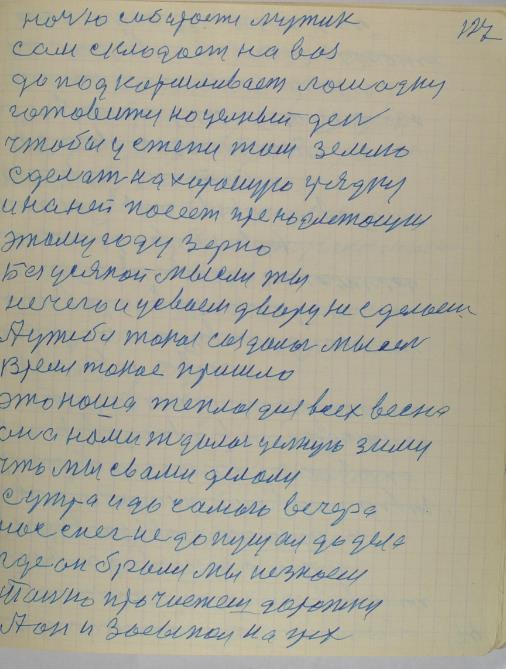 127
ночью собирает мужик
сам складает на воз
да подкармливает лошадку
готовит на целный ден
чтобы у степи там землю
сделат на харошую грядку
и на ней посеет
этому году зерно
Без усякой мысли ты
нечего и усваем двару не сделаеш
А у тебя такая создалас мысел
Время такое пришло
это наша теплая для всех весна
она нами ждалас целую зиму
что мы свами делали
сутра и до самого вечера
нас снег не допущал до дела
где он брался мы не знаем
прочистеш дорожку
А он и